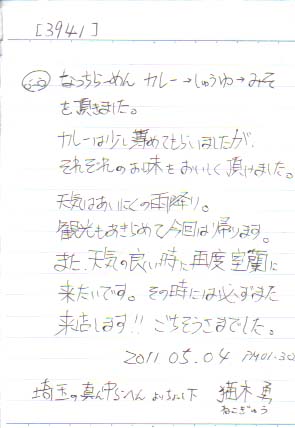 [3941]
なっちらーめん カレー→しょうゆ→みそ
を頂きました。
カレーは少し薄めてもらいましたが、
それぞれのお味をおいしく頂けました。
天気はあいにくの雨降り。
観光もあきらめて今回は帰ります。
また、天気の良い時に再度室蘭に
来たいです。その時には必ずまた
来店します!! ごちそうさまでした。
2011 05.04 PM01:30
埼玉の真ん中らへん よりちょい下 猫木 勇
ねこぎゆう